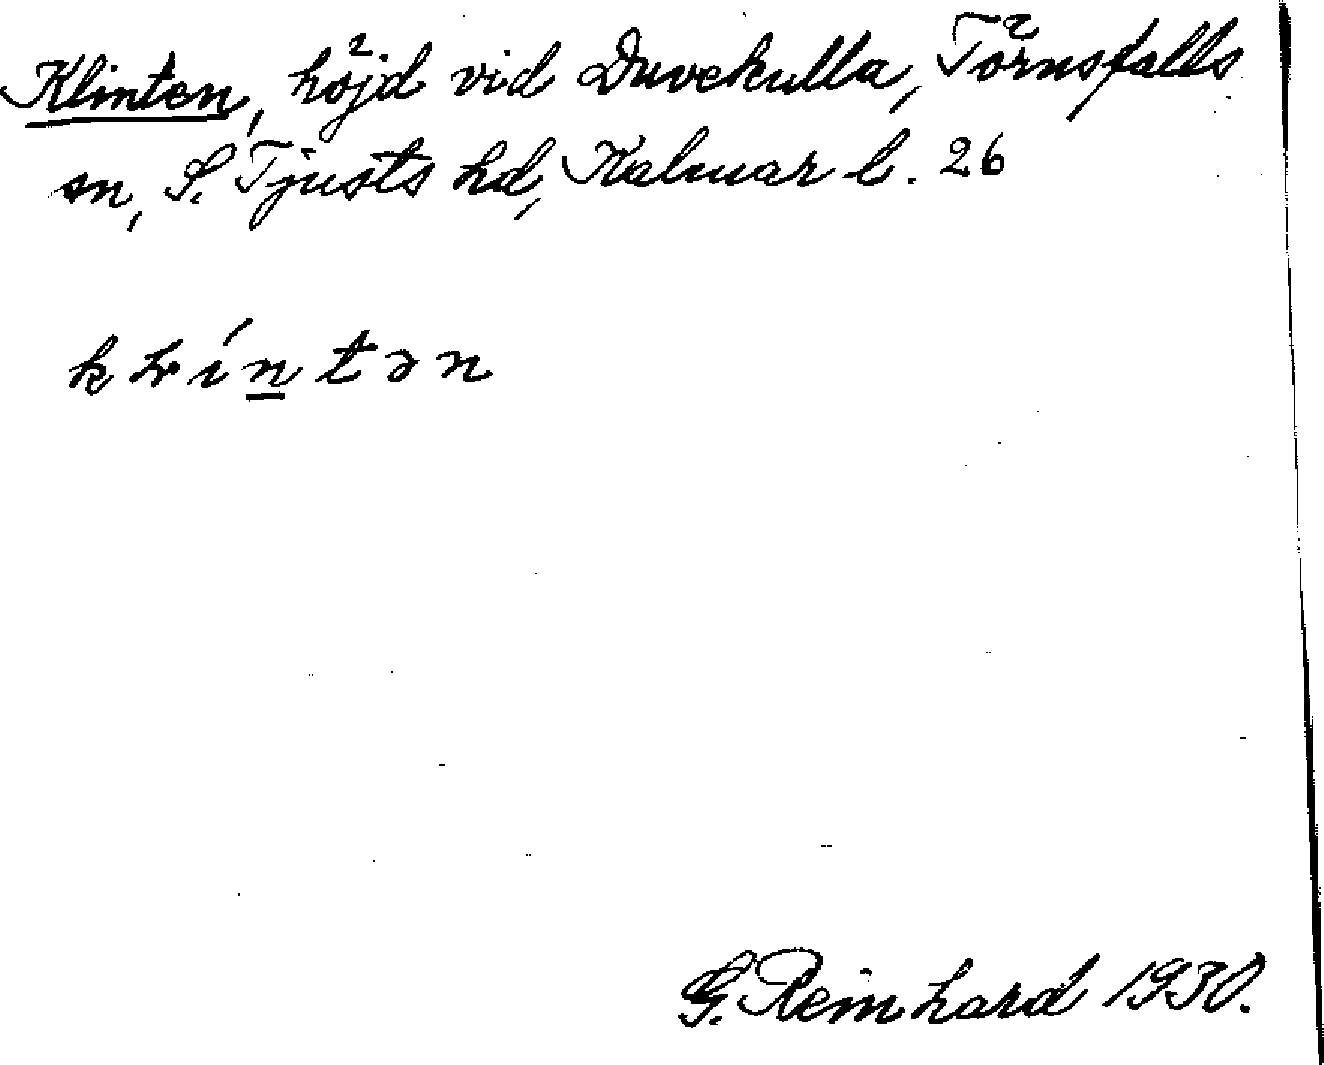 Klinten, höjd vid Duvekulla, Törnsfalls
sn, S. Tjusts hd, Kalmar l. 26
k ł í n̲ t ə n
G. Reinhard 1930.